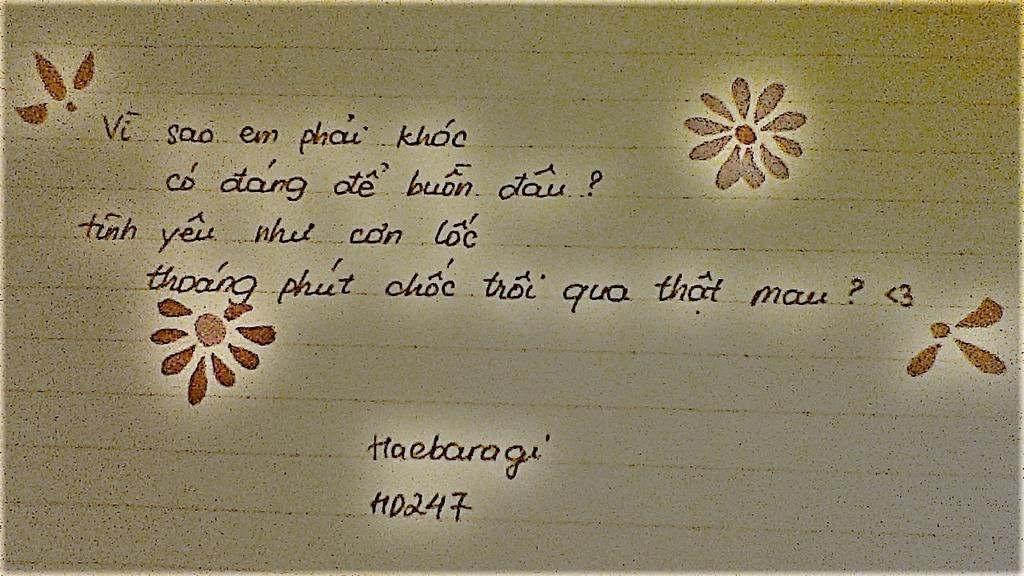 Vì sao em phải khóc
có đáng để buồn đâu ?
tình yêu như cơn lốc
thoáng phút chốc trôi qua thật mau ? <3
Haebaragi
HD247